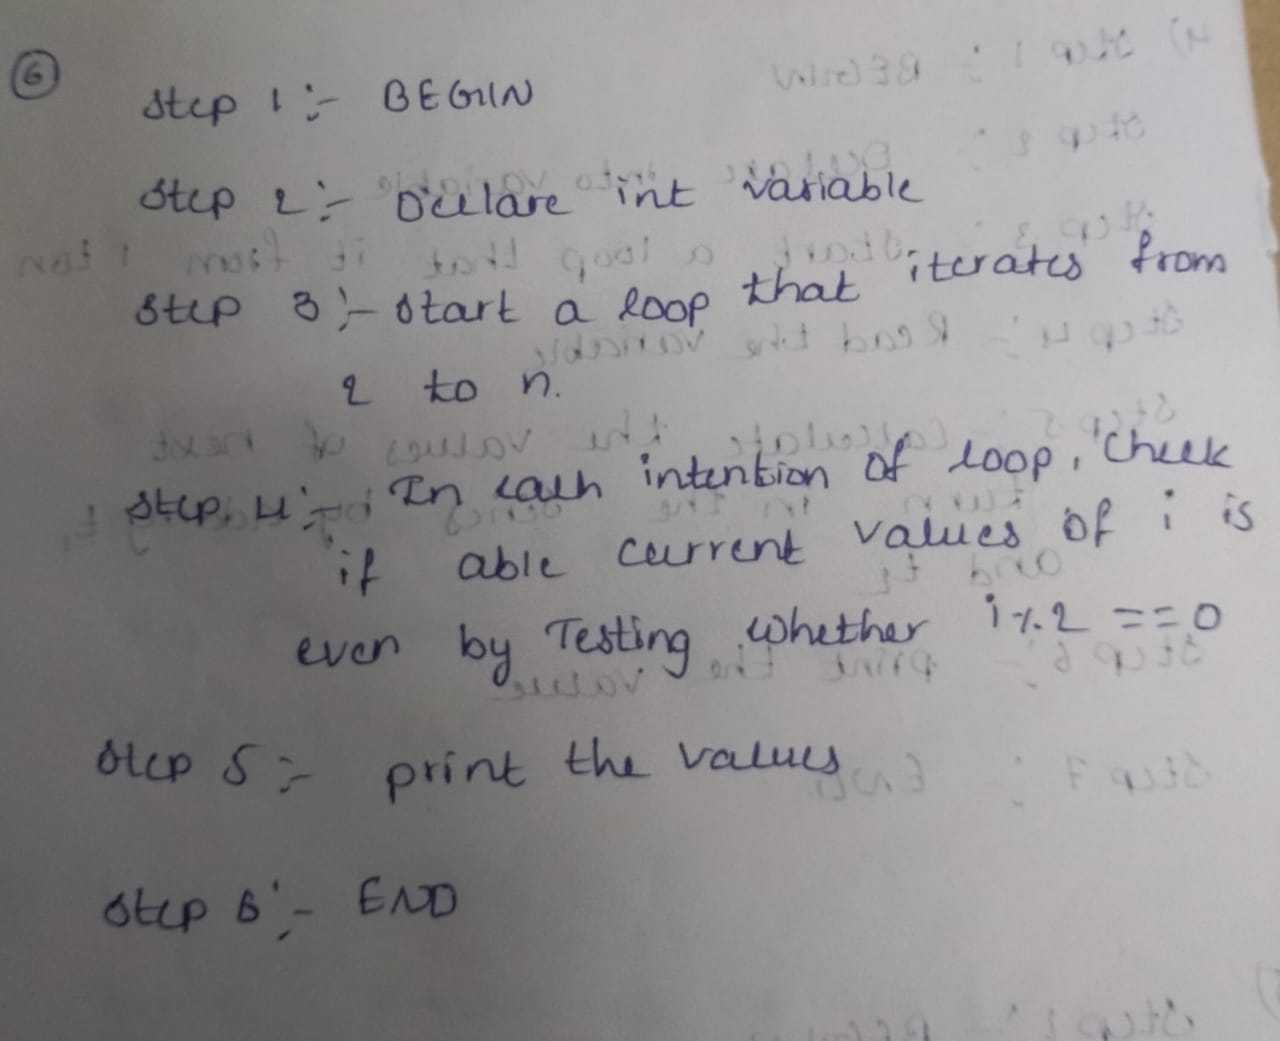 6
Step 1 :- BEGIN
Step 2 :- Declare int variable
Step 3 :- Start a loop that iterates from
2 to n.
Step 4 :- In each intention of loop, Check
if able current values of i is
even by Testing whether i%2 ==0
Step 5 :- print the values
Step 6 :- END